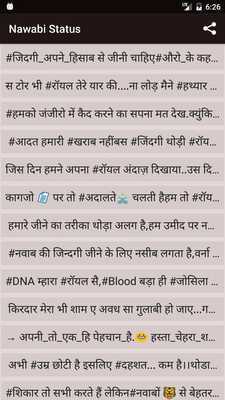 6:26
Nawabi Status
#जिदगी_अपने_हिसाब से जीनी चाहिए#औरो_के कह...
स टोर भी #रॉयल तेरे यार की....ना लोड़ मैने #हथ्यार ...
#हमको जंजीरो में कैद करने का सपना मत देख.क्युंकि...
#आदत हमारी #खराब नहींबस #जिंदगी थोड़ी #रॉय...
जिस दिन हमने अपना #रॉयल अंदाज़ दिखाया..उस दि...
कागजो 📘 पर तो #अदालते चलती हैहम तो #रॉय...
हमारे जीने का तरीका थोड़ा अलग है,हम उमीद पर न...
#नवाब की जिन्दगी जीने के लिए नसीब लगता है,वर्ना ...
#DNA म्हारा #रॉयल सै,#Blood बड़ा ही #जोसिला ...
किरदार मेरा भी शाम ए अवध सा गुलाबी हो जाए...ग...
→ अपनी_तो_एक_हि पेहचान_है.😊 हस्ता_चेहरा_श...
अभी #उम्र छोटी है इसलिए #दहशत... कम है।।थोडा...
#शिकार तो सभी करते हैं लेकिन#नवाबों 🐯 से बेहतर...